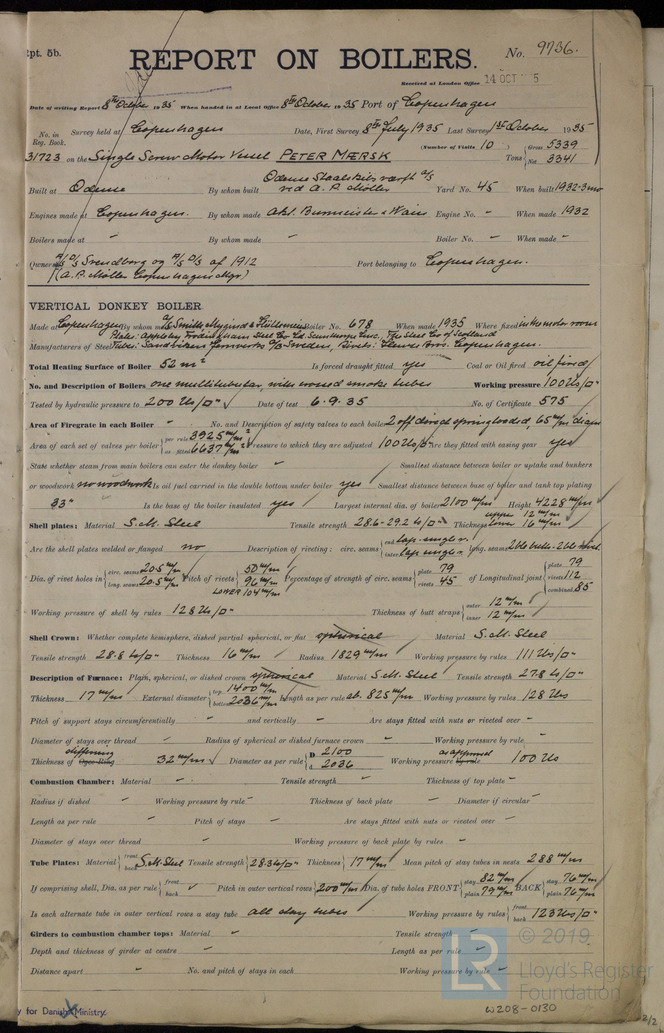 Rpt. 5b.
REPORT ON BOILERS.
No. 9736.
Received at London Office 14 OCT
Date of writing Report 8th October 1935 When handed in at Local Office 8th October 1935 Port of Copenhagen
No. in Reg. Book. Survey held at Copenhagen Date, First Survey 8th July 1935 Last Survey 1st October 1935
(Number of Visits 10)
31723 on the Single Screw Motor Vessel PETER MÆRSK Tons { Gross 5339 Nett 3341
Built at Odense By whom built Odense Staalskibsværft a/s ved A. P. Möller Yard No. 45 When built 1932-3mo
Engines made at Copenhagen. By whom made Akt. Burmeister & Wain Engine No. - When made 1932
Boilers made at - By whom made - Boiler No. - When made -
Owners A/S D/S Svendborg og A/S D/S af 1912 Port belonging to Copenhagen.
(A. P. Möller Copenhagen Mgr.)
VERTICAL DONKEY BOILER.
Made at Copenhagen By whom made a/s Smith, Mygind & Hüttemeier Boiler No. 678 When made 1935 Where fixed in the motor room
Plates: Appleby Frodingham Steel Co Ld Scunthorpe Linc., The Steel Co of Scotland
Manufacturers of Steel Tubes: Sandvikens Jernverks a/B Sweden, Rivets: Bros. Copenhagen.
Total Heating Surface of Boiler 52 m² Is forced draught fitted yes Coal or Oil fired oil fired
No. and Description of Boilers one multitubular, with smoke tubes Working pressure 100 lbs/□"
Tested by hydraulic pressure to 200 lbs/□" Date of test 6.9.35 No. of Certificate 575
Area of Firegrate in each Boiler - No. and Description of safety valves to each boiler 2 off direct springloaded, 65 m/m diam
Area of each set of valves per boiler { per rule 3925 m/m² as fitted 6637 m/m² Pressure to which they are adjusted 100 lbs/□" Are they fitted with easing gear yes
State whether steam from main boilers can enter the donkey boiler - Smallest distance between boiler or uptake and bunkers
or woodwork no woodwork Is oil fuel carried in the double bottom under boiler yes Smallest distance between base of boiler and tank top plating
33" Is the base of the boiler insulated yes Largest internal dia. of boiler 2100 m/m Height 4228 m/m
Shell plates: Material S.M. Steel Tensile strength 28.6-29.2 to/□" Thickness upper 12 m/m lower 16 m/m
Are the shell plates welded or flanged no Description of riveting: circ. seams { end lap single r. inter. lap single r. long. seams
Dia. of rivet holes in { circ. seams 20.5 m/m long. seams 20.5 m/m Pitch of rivets { 50 m/m 96 m/m LOWER 104 m/m Percentage of strength of circ. seams { plate 79 rivets 45 of Longitudinal joint { plate 79 rivets 112 combined 85
Working pressure of shell by rules 128 lbs/□" Thickness of butt straps { outer 12 m/m inner 12 m/m
Shell Crown: Whether complete hemisphere, dished partial spherical, or flat spherical Material S.M. Steel
Tensile strength 28.8 to/□" Thickness 16 m/m Radius 1829 m/m Working pressure by rules 111 lbs/□"
Description of Furnace: Plain, spherical, or dished crown spherical Material S.M. Steel Tensile strength 27.8 to/□"
Thickness 17 m/m External diameter { top 1400 m/m bottom 2036 m/m Length as per rule ab. 825 m/m Working pressure by rules 128 lbs
Pitch of support stays circumferentially - and vertically - Are stays fitted with nuts or riveted over -
Diameter of stays over thread - Radius of spherical or dished furnace crown - Working pressure by rule -
Thickness of stiffening Ogee Ring 32 m/m Diameter as per rule { D 2100 d 2036 Working pressure as approved by rule 100 lbs
Combustion Chamber: Material - Tensile strength - Thickness of top plate -
Radius if dished - Working pressure by rule - Thickness of back plate - Diameter if circular -
Length as per rule - Pitch of stays - Are stays fitted with nuts or riveted over -
Diameter of stays over thread - Working pressure of back plate by rules -
Tube Plates: Material { front back S.M. Steel Tensile strength { 28.3 to/□" Thickness { 17 m/m Mean pitch of stay tubes in nests 288 m/m
If comprising shell, Dia. as per rule { front back - Pitch in outer vertical rows { 200 m/m Dia. of tube holes FRONT { stay 82 m/m plain 79 m/m BACK { stay 76 m/m plain 76 m/m
Is each alternate tube in outer vertical rows a stay tube all stay tubes Working pressure by rules { front back 123 lbs/□"
Girders to combustion chamber tops: Material - Tensile strength -
Depth and thickness of girder at centre - Length as per rule -
Distance apart - No. and pitch of stays in each - Working pressure by rule -
© 2019
LR Lloyd's Register Foundation
y for Danish Ministry.
W208-0130
2/2